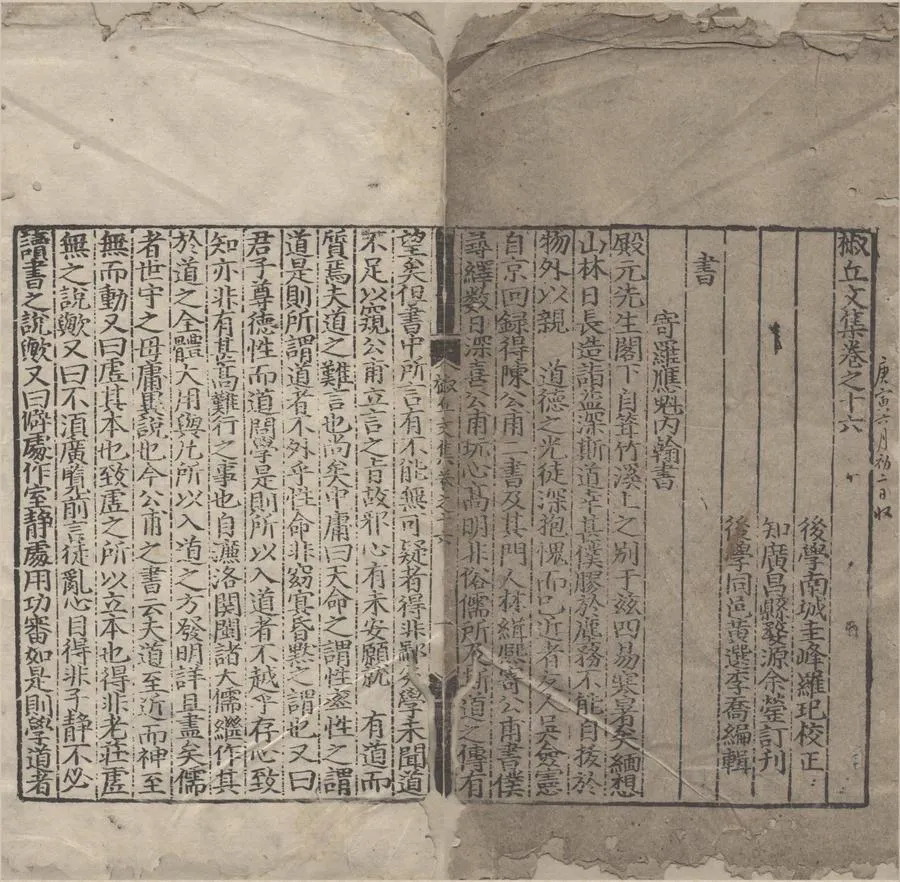 庚寅六月初二日收
椒丘文集卷之十六
後學南城圭峰羅玘校正
知廣昌縣婺源余罃訂刊
後學同邑黃選李喬編輯
書
寄羅應魁內翰書
殿元先生閣下自笒竹溪上之別于兹四易寒暑矣緬想
山林日長造詣益深斯道幸甚僕膠於塵務不能自拔於
物外以親　道德之光徒深抱愧而已近者友人吳僉憲
自京回録得陳公甫二書及其門人林緝熙寄公甫書僕
尋繹數日深喜公甫玩心高明非俗儒所及斯道之傳有
椒丘文集卷之十六
一
望矣但書中所言有不能無可疑者得非鄙人學未聞道
不足以窺公甫立言之旨故邪心有未安願就　有道而
質焉夫道之難言也尚矣中庸曰天命之謂性率性之謂
道是則所謂道者不外乎性命非窈冥昏默之謂也又曰
君子尊德性而道問學是則所以入道者不越乎存心致
知亦非有甚高難行之事也自濂洛関閩諸大儒繼作其
於道之全體大用與凡所以入道之方發明詳且盡矣儒
者世守之毋庸異說也今公甫之書云夫道至近而神至
無而動又曰虛其本也致虛之所以立本也得非老莊虛
無之說歟又曰不須廣覽前言徒亂心目得非子静不必
讀書之說歟又曰僻處作室静處用功審如是則學道者